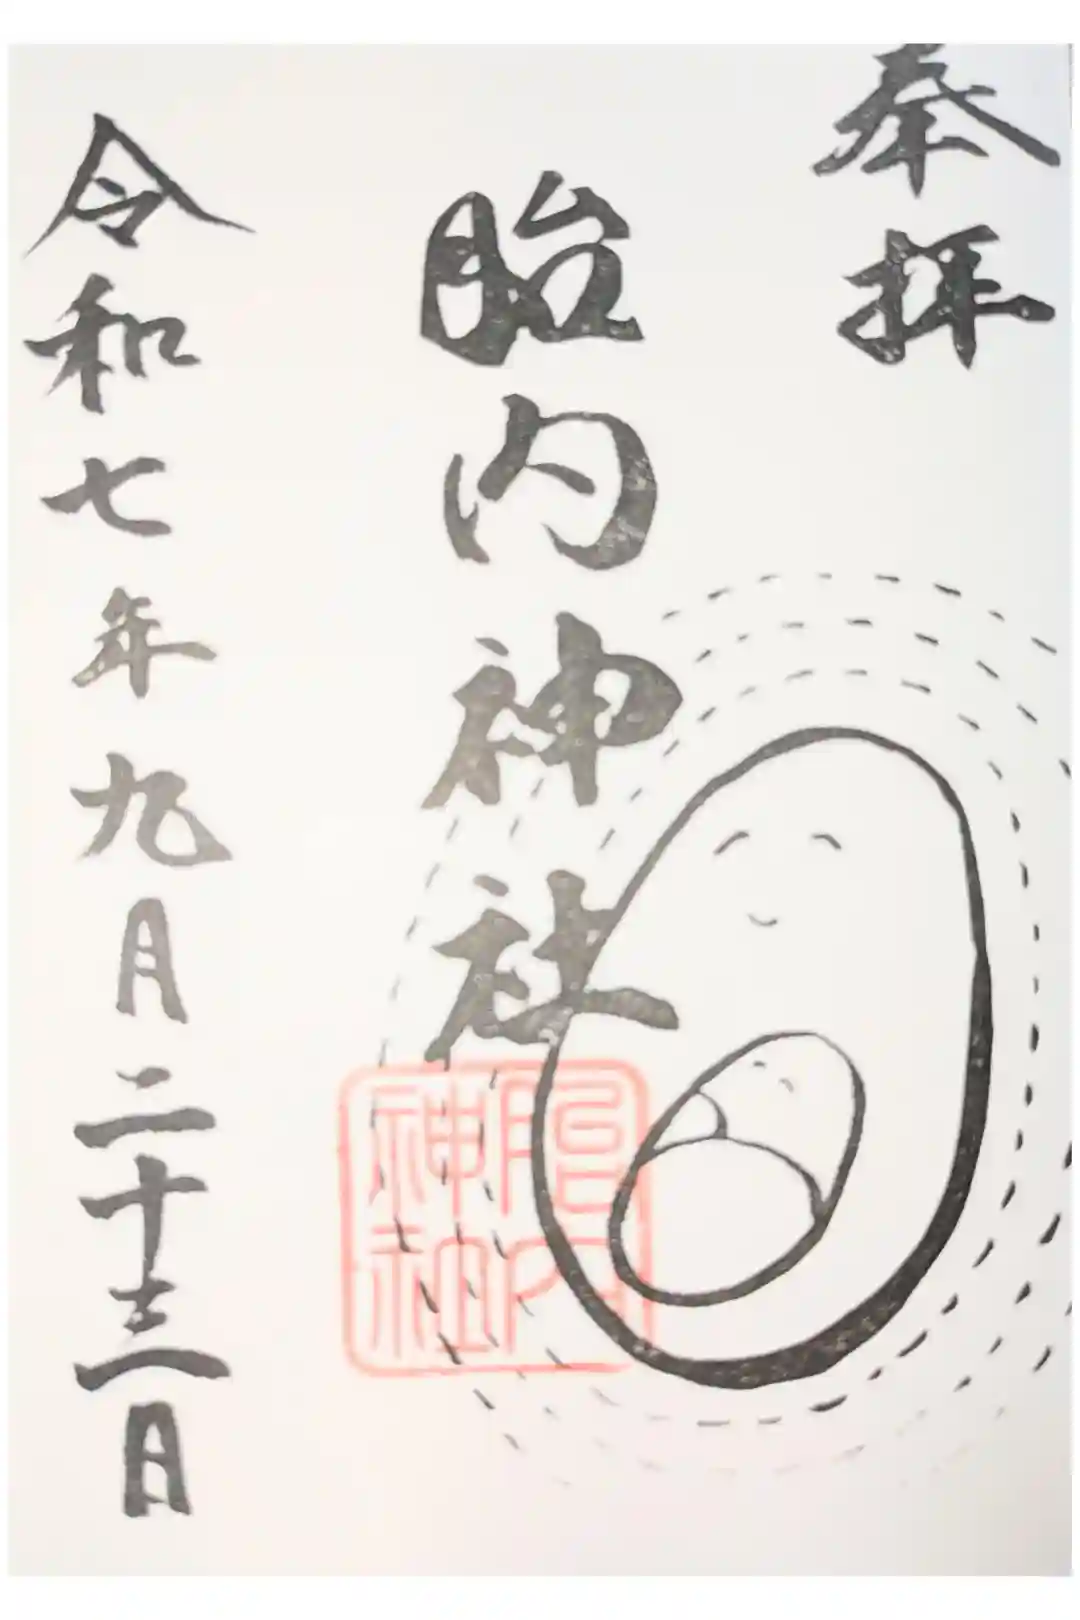 奉拝
胎内神社
令和七年九月二十三日
胎内
神社